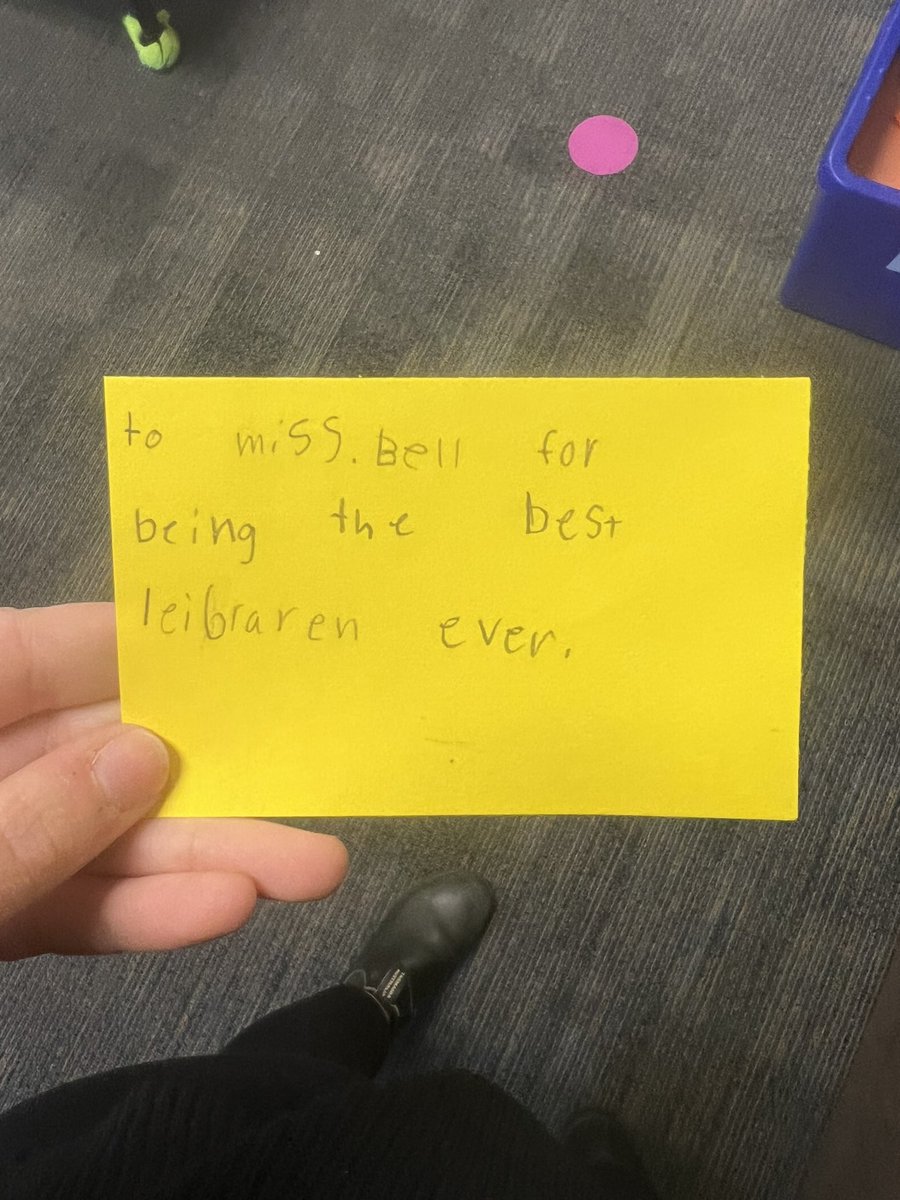 to miss. Bell for
being the best
leibraren ever.